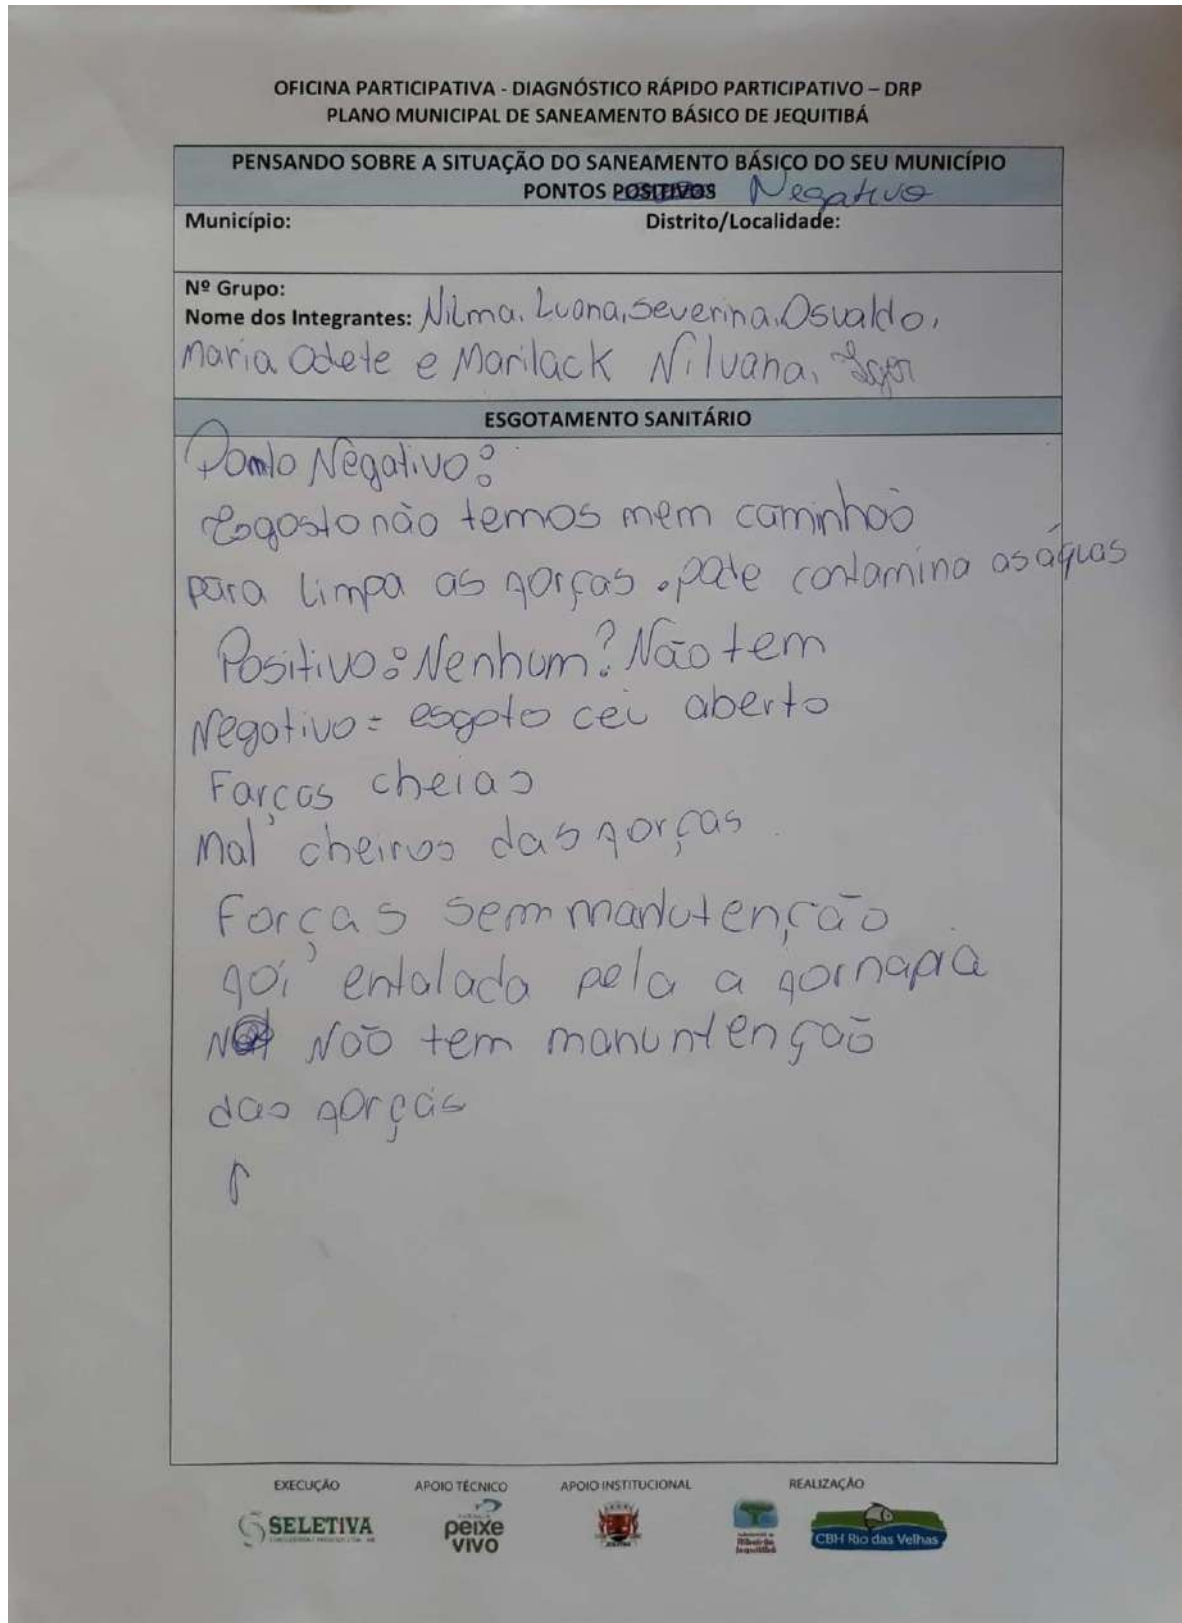 OFICINA PARTICIPATIVA - DIAGNÓSTICO RÁPIDO PARTICIPATIVO – DRP
PLANO MUNICIPAL DE SANEAMENTO BÁSICO DE JEQUITIBÁ
PENSANDO SOBRE A SITUAÇÃO DO SANEAMENTO BÁSICO DO SEU MUNICÍPIO
PONTOS POSITIVOS Negativo
Município: Distrito/Localidade:
Nº Grupo:
Nome dos Integrantes: Nilma, Luana, Severina, Osvaldo,
Maria Odete e Marilack Nilvana, Igor
ESGOTAMENTO SANITÁRIO
Ponto Negativo:
Esgosto não temos mem caminhoõ
para limpa as forças. pode contamina as águas
Positivo: Nenhum? Não tem
Negativo = esgoto ceu aberto
Farças cheias
Mal cheiros das forças.
Forças sem manutenção
foi entalada pela a
Não tem manuntençoõ
das forças
EXECUÇÃO APOIO TÉCNICO APOIO INSTITUCIONAL REALIZAÇÃO
SELETIVA
peixe
VIVO
Ribeirão
Jequitibá
CBH Rio das Velhas